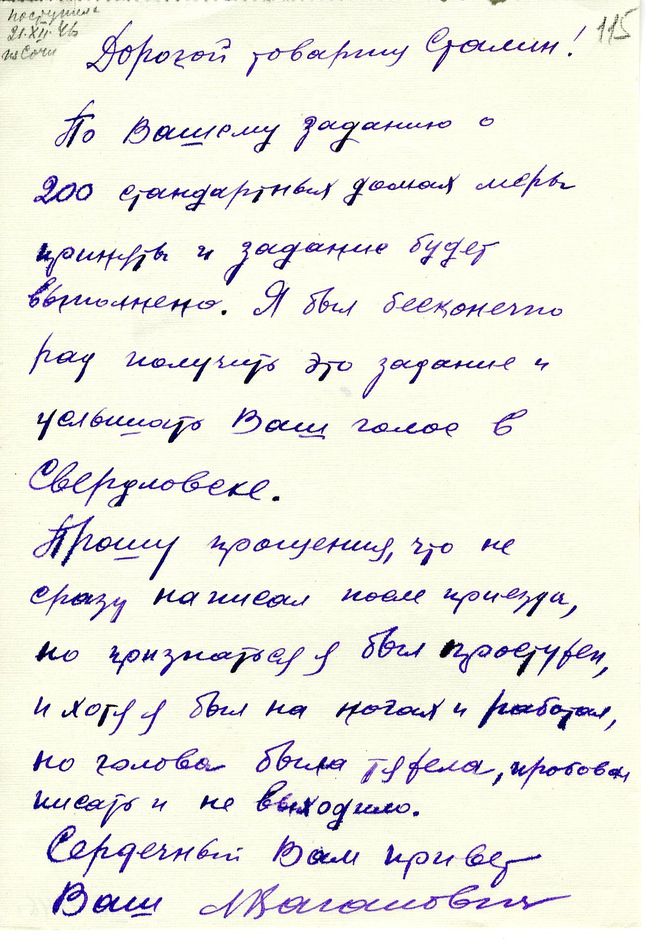 поступило
21.XII.46
из Сочи
115
Дорогой товарищ Сталин!
По Вашему заданию о
200 стандартных домах меры
приняты и задание будет
выполнено. Я был бесконечно
рад получить это задание и
услышать Ваш голос в
Свердловске.
Прошу прощения, что не
сразу написал после приезда,
но признаться я был простужен,
и хотя я был на ногах и работал,
но голова была тяжела, пробовал
писать и не выходило.
Сердечный Вам привет
Ваш Л Каганович